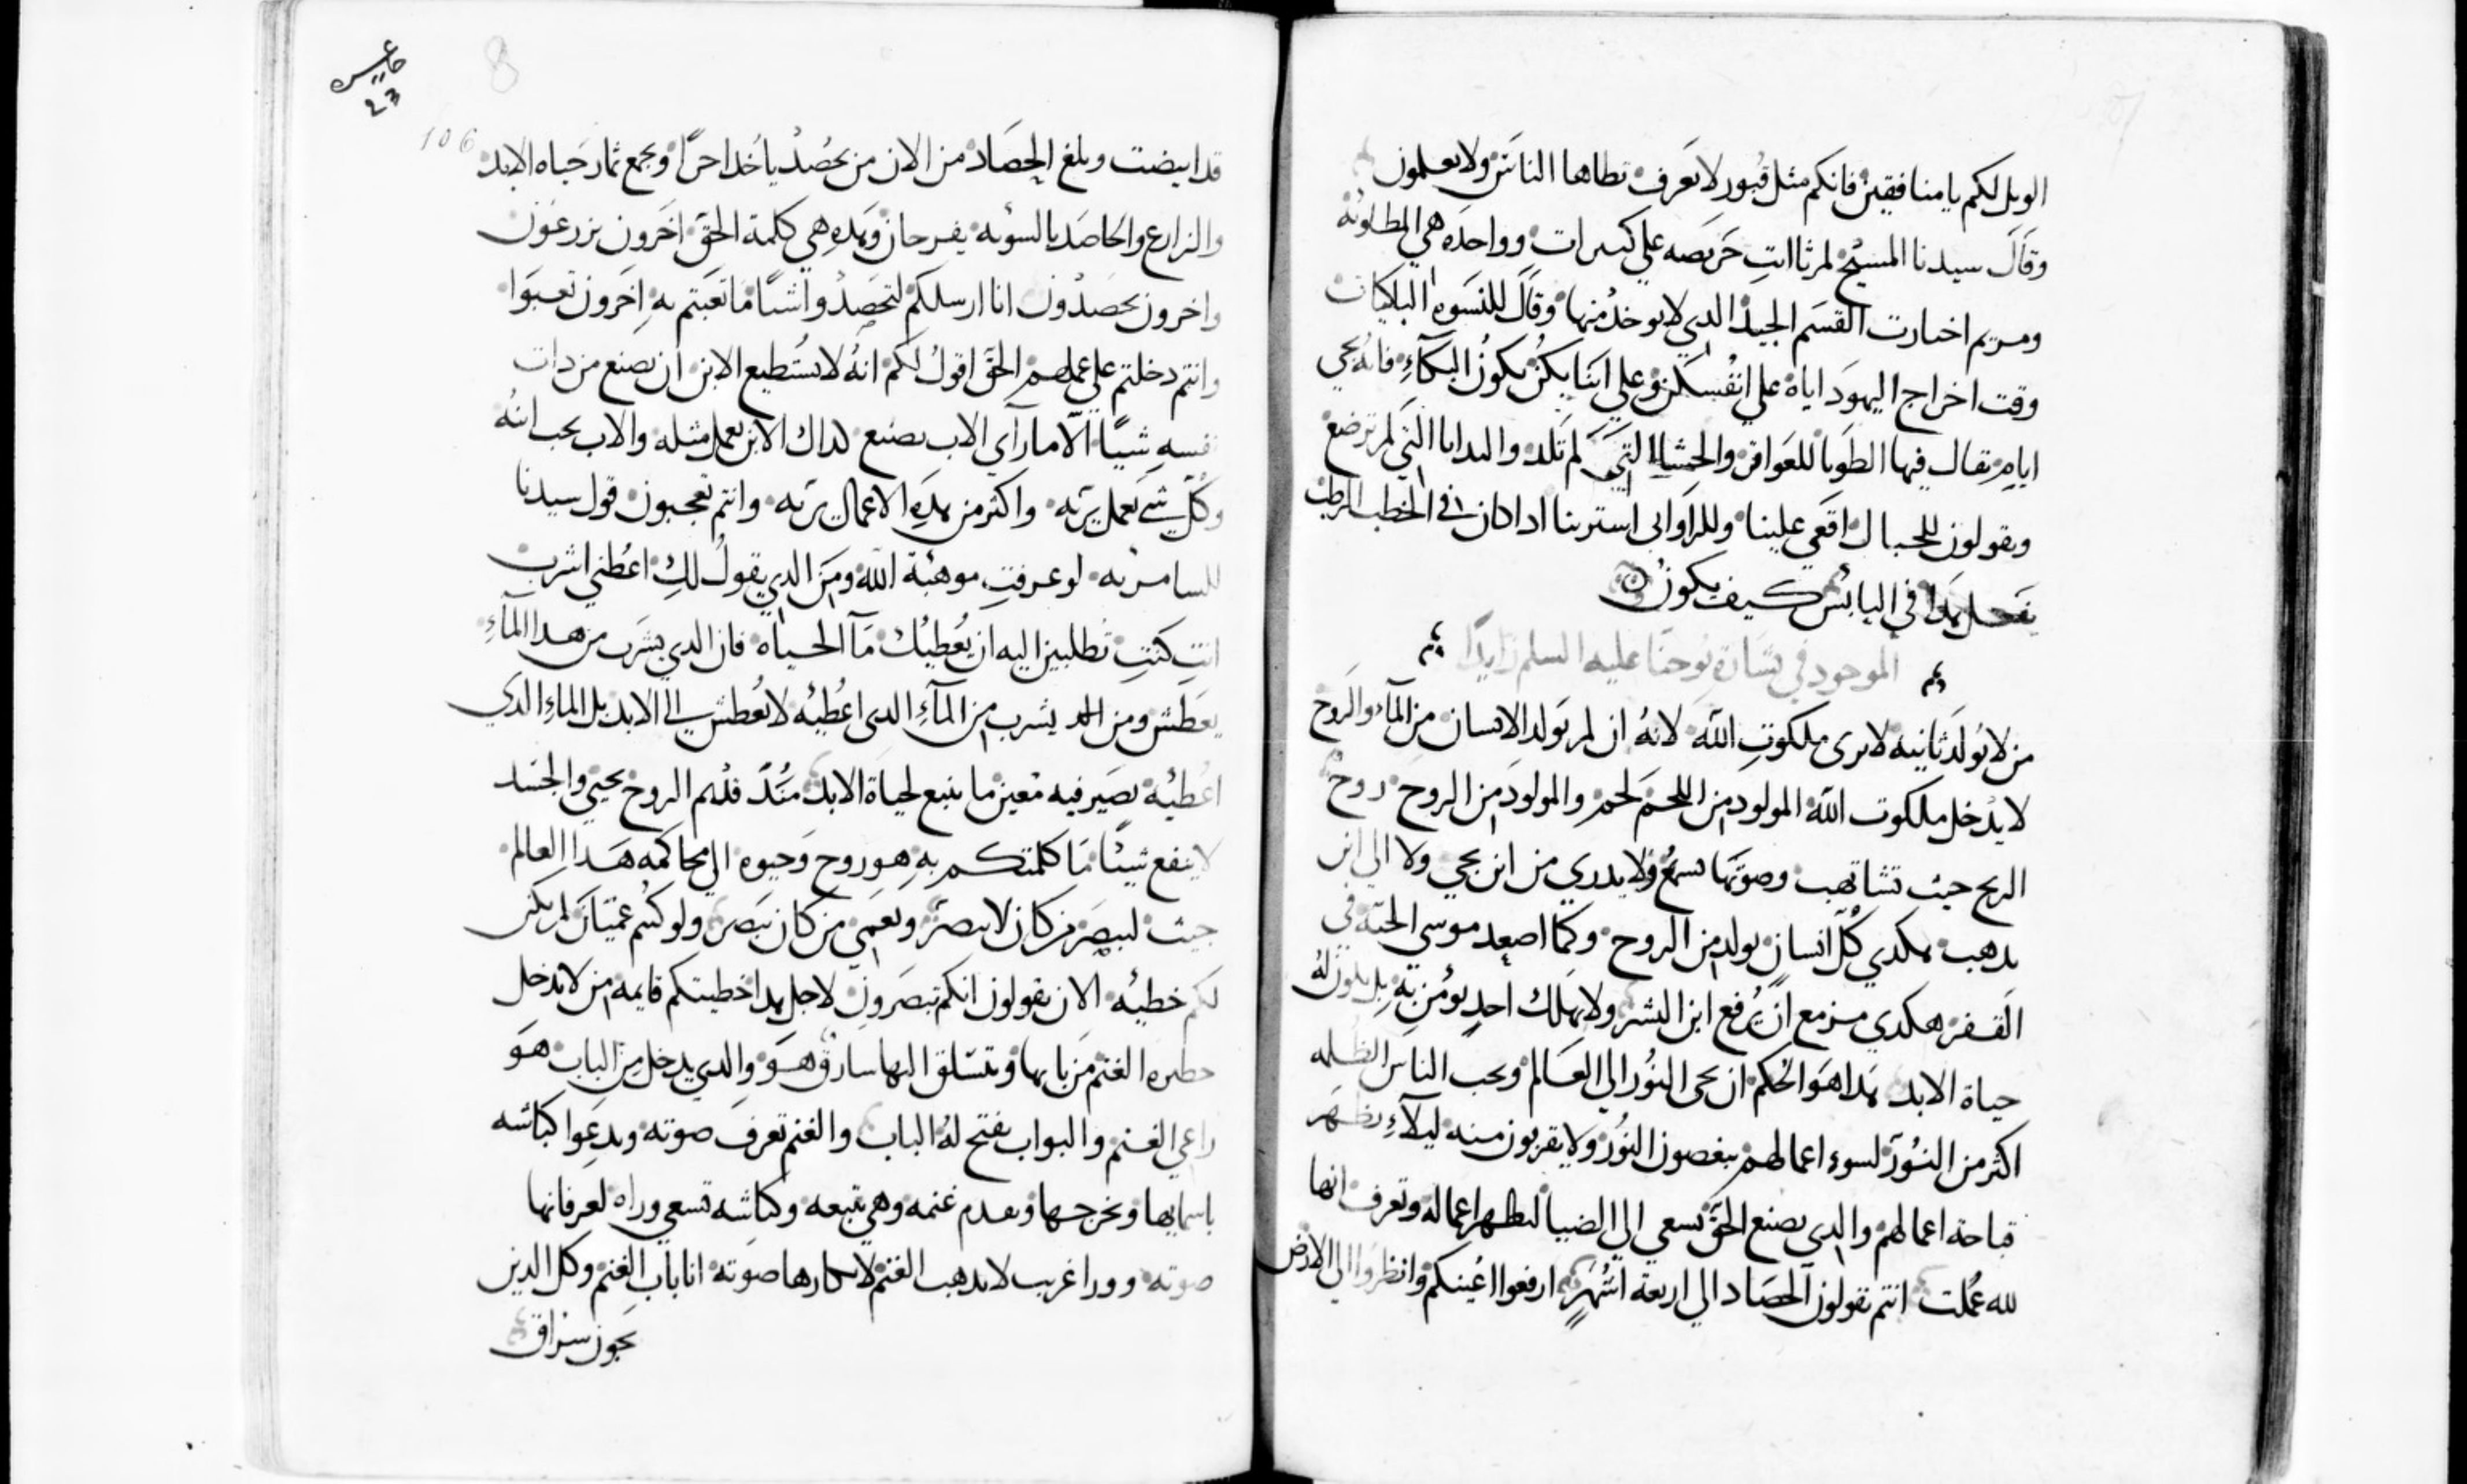 الويل لكم يا منافقين فانكم مثل قبور لا تعرف تطاها الناس ولا يعلمون
وقال سيدنا المسيح لمرثا انتِ حريصه علي كسرات وواحده هي المطلوبه
ومريم اختارت القسم الجيد الدي لا يوخد منها وقال للنسوه الباكيات
وقت اخراج اليهود اياه علي انفسكن وعلي ابنايكن يكون البكآءِ فانه يجي
ايام تقال فيها الطوبا للعواقر والحشاا التي لم تلد والتدايا التي لم ترضع
ويقولون للجبال اقعي علينا وللروابي استرينا ادا كان في الحطب الرطب
يفعل هدا في اليابس كيف يكون
الموجود في بشارة يوحنا عليه السلم زايدًا
من لا يولد ثانيه لا يرى ملكوتِ الله لانهُ ان لم يولد الانسان من المآء والروح
لا يدخل ملكوت الله المولود من اللحم لحم والمولود من الروح روح
الريح حيث تشا تهب وصوتها تسمع ولا يدري من اين يجي ولا الي اين
يدهب هكدي كل انسان يولد من الروح وكما اصعد موسي الحيّة في
القفر هكدي مزمع ان يُرفع ابن البشر ولا يهلك احدٍ يؤمن به بل يكون لهُ
حياة الابد هدا هو الحكم ان يجي النور الي العالم ويحب الناس الظلمه
اكثر من النور لسوء اعمالهم يبغضون النور ولا يقربون منه ليلآءِ يظهر
قباحة اعمالهم والدي يصنع الحق يسعي الي الضيا ليظهر اعماله وتعرف انها
لله عُملت انتم تقولون الحصاد الي اربعة اشهرٍ ارفعوا اعينكم وانظروا الي الارض
عايس
23
8
106
قد ابيضت وبلغ الحصاد من الان من يحصُد ياخد اجرًا ويجمع ثمار حياه الابد
والزارع والحاصد بالسويه يفرحان وهدهِ هي كلمة الحق اخرون يزرعون
واخرون يحصدون انا ارسلكم لتحصدوا شيًا ما تعبتم بهِ اخرون تعبوا
وانتم دخلتم علي عملهم الحق اقول لكم انهُ لا يستطيع الابن ان يصنع من دات
نفسهِ شيًا الّا ما رآي الاب يصنع لداك الابن يعمل مثله والاب يحب ابنهُ
وكل شي يعمل يريه واكثر من هدهِ الاعمال يريه وانتم تعجبون قول سيدنا
للسامريه لو عرفتِ موهبة الله ومن الدي يقول لكِ اعطني اشرب
انتِ كنتِ تطلبين اليه ان يُعطيك مآ الحياه فان الدي يشرب من هدا المآءِ
يعطش ومن يشرب من المآءِ الدي اعُطيهُ لا يعطش الي الابد بل الماءِ الدي
اعُطيهُ يصير فيه معين ما ينبع لحياة الابد الروح يحيي والجسد
لا ينفع شيئًا ما كلمتكم بهِ هو روح وحيوه الي محاكمه هدا العالم
جيت ليبصر من كان لا يبصر ويعمي من كان يبصر ولو كنتم عميان لم يكن
لكم خطيه الان تقولون انكم تبصرون لاجل هدا خطيتكم قايمه من لا يدخل
حظيره الغنم من بابها ويتسلق اليها سارق هو والدي يدخل من الباب هو
راعي الغنم والبواب يفتح لهُ الباب والغنم تعرف صوته ويدعوا كباشه
باسمايها ويخرجها ويقدم غنمه وهي تتبعه وكباشه تسعي وراه لعرفانها
صوته وورا غريب لا يدهب الغنم لانكارها صوته انا باب الغنم وكل الدين
يجون سراق